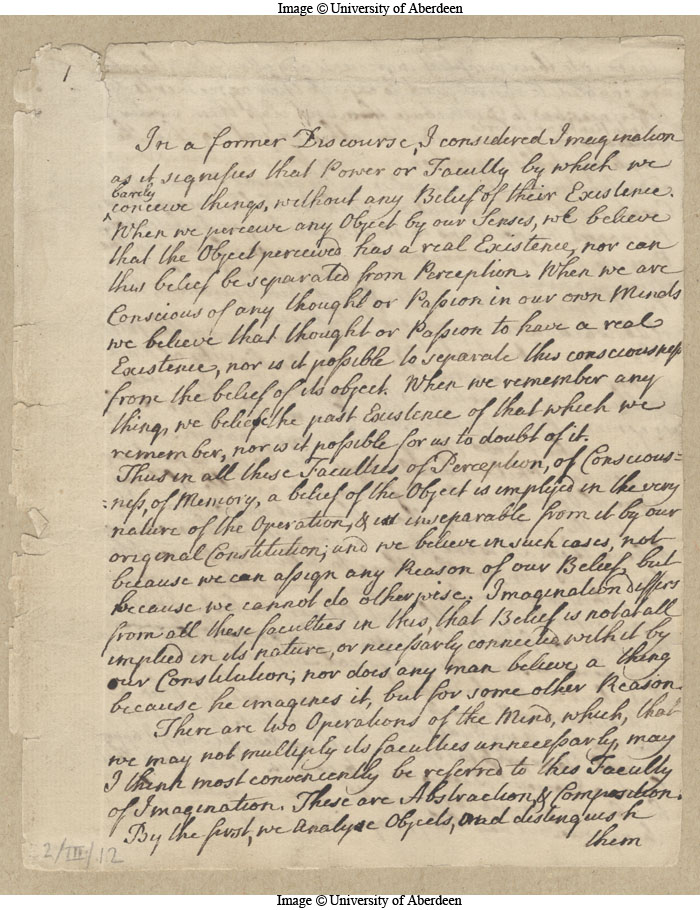 Image © University of Aberdeen
1
In a former Discourse, I considered Imagination
as it signifies that Power or Faculty by which we
barely
conceive things, without any Belief of their Existence.
When we perceive any Object by our Senses, we believe
that the Object perceived has a real Existence, nor can
this belief be separated from Perception. When we are
Conscious of any thought or Passion in our own Minds
we believe that thought or Passion to have a real
Existence, nor is it possible to separate this consciousness
from the belief of its object. When we remember any
thing, we believe the past Existence of that which we
remember, nor is it possible for us to doubt of it.
Thus in all these Faculties of Perception, of Conscious=
=ness, of Memory, a belief of the Object is implyed in the very
nature of the Operation, & is inseparable from it by our
original Constitution; and we believe in such cases, not
because we can assign any Reason of our Belief, but
because we cannot do otherwise. Imagination differs
from all these faculties in this, that Belief is not at all
implied in its nature, or necessarly connected with it by
our Constitution; nor does any man believe a thing
because he imagines it, but for some other Reason.
There are two Operations of the Mind, which, that
we may not multiply its faculties unnecessarly, may
I think most conveniently be referred to this Faculty
of Imagination. These are Abstraction & Composition.
By the first, we Analyse Objects, and distinguish
them
2/III/12
Image © University of Aberdeen